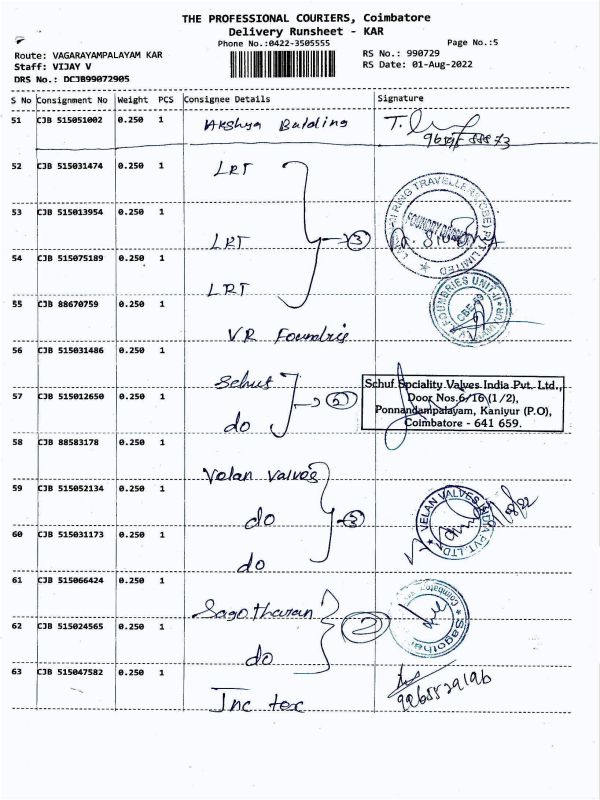 THE PROFESSIONAL COURIERS, Coimbatore
Delivery Runsheet - KAR
Phone No.:0422-3505555
Page No.:5
Route: VAGARAYAMPALAYAM KAR
RS No.: 990729
Staff: VIJAY V
RS Date: 01-Aug-2022
DRS No.: DCJB99072905
S No Consignment No Weight PCS Consignee Details Signature
51 CJB 515051002 0.250 1 Akshya Bulding T.
52 CJB 515031474 0.250 1 LRT
53 CJB 515013954 0.250 1 LRT 3
54 CJB 515075189 0.250 1 LRT
55 CJB 88670759 0.250 1 V.R Foundris
56 CJB 515031486 0.250 1 Schuf
57 CJB 515012650 0.250 1 do
Schuf Spciality Valves India Pvt. Ltd.,
Door Nos.6/16 (1/2),
Ponnandampalayam, Kaniyur (P.O),
Coimbatore - 641 659.
58 CJB 88583178 0.250 1 Velan valves
59 CJB 515052134 0.250 1 do 3
60 CJB 515031173 0.250 1 do
VELAN VALVES INDIA PVT.LTD.
61 CJB 515066424 0.250 1 Sagotharan
62 CJB 515024565 0.250 1 do 2
63 CJB 515047582 0.250 1 Inc tex
9965529196